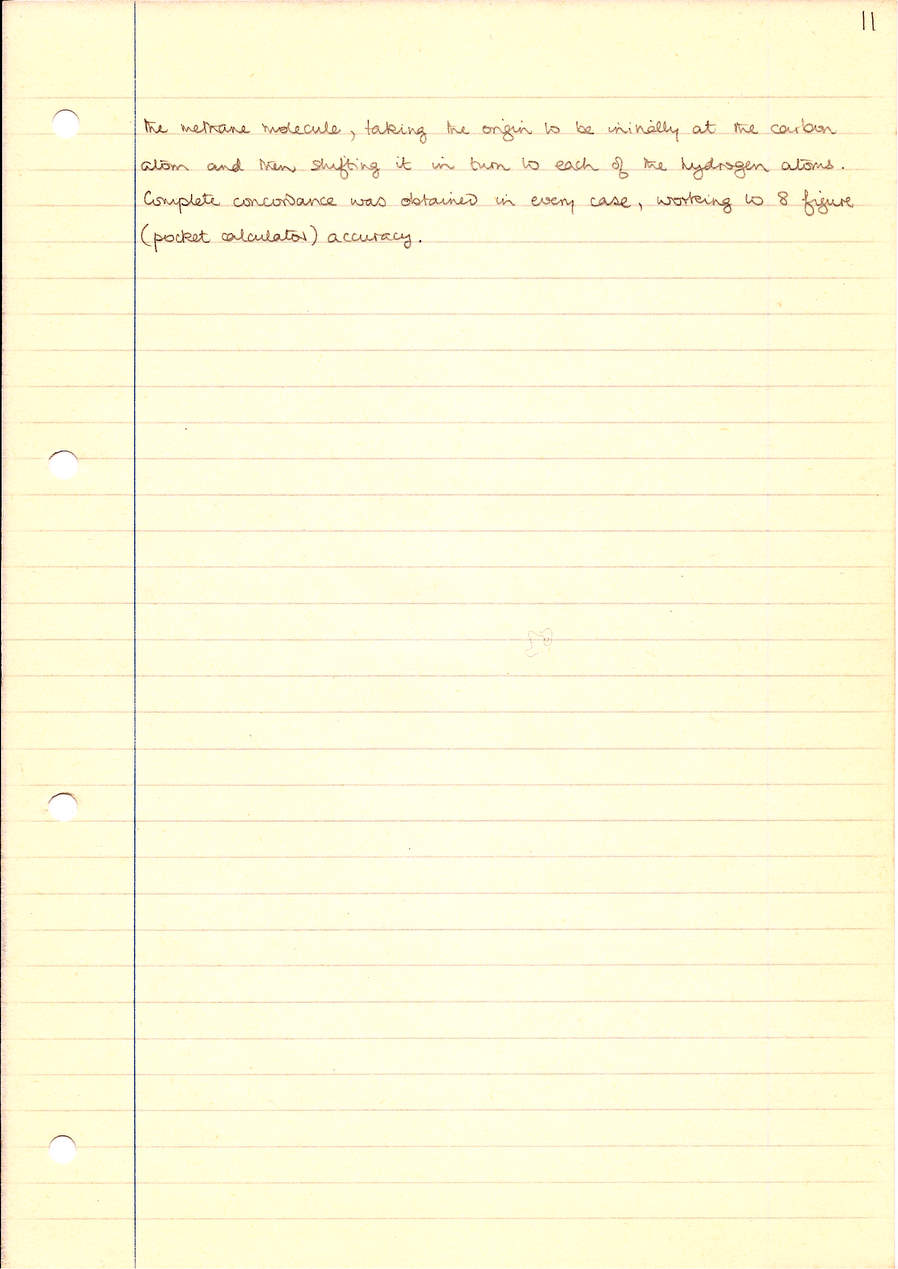 11
the methane molecule, taking the origin to be initially at the carbon
atom and then shifting it in turn to each of the hydrogen atoms.
Complete concordance was obtained in every case, working to 8 figure
(pocket calculator) accuracy.